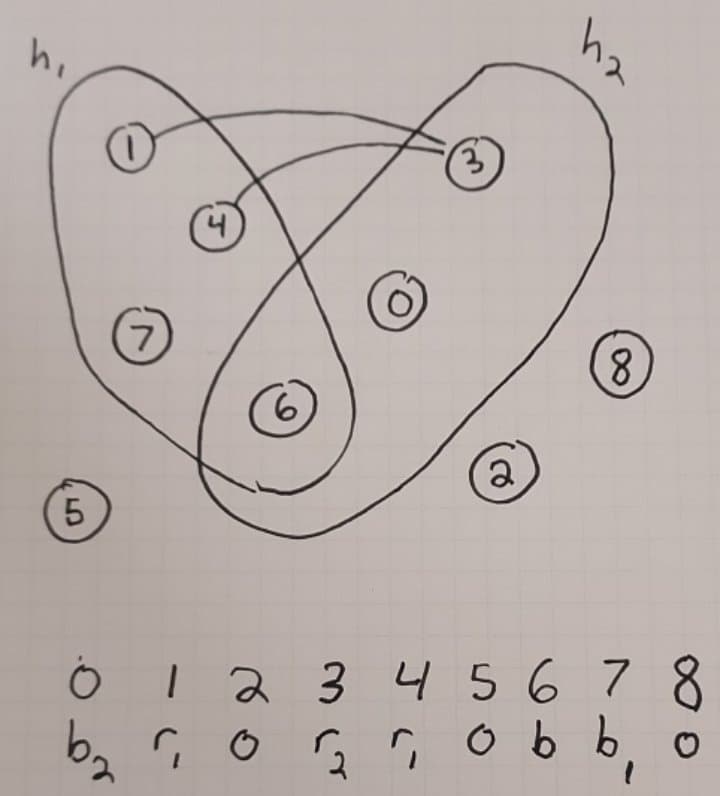 h₁ h₂
1 3
4
7 0
6 8
5 2
0 1 2 3 4 5 6 7 8
b₂ r₁ 0 r₂ r₁ 0 b b₁ 0